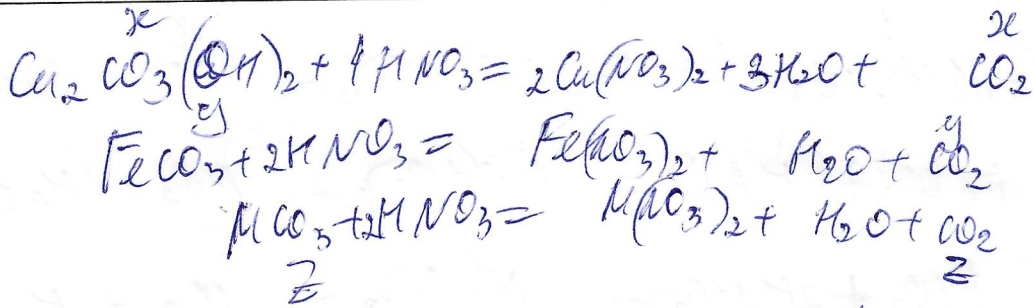 x x
Cu2 CO3(OH)2 + 4HNO3 = 2Cu(NO3)2 + 3H2O + CO2
y y
FeCO3 + 2HNO3 = Fe(NO3)2 + H2O + CO2
MCO3 + 2HNO3 = M(NO3)2 + H2O + CO2
z z